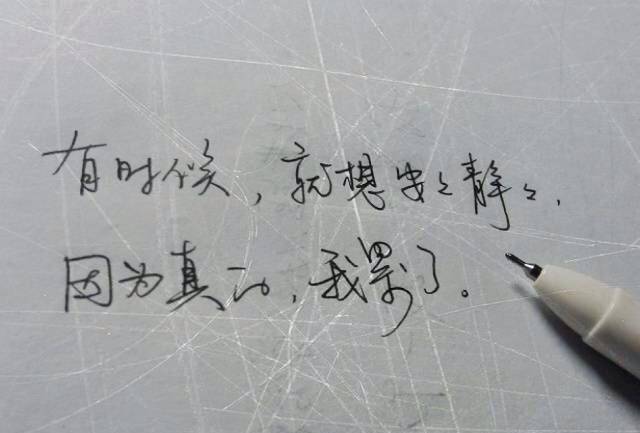 有时候，就想安々静々，
因为真的，我累了。